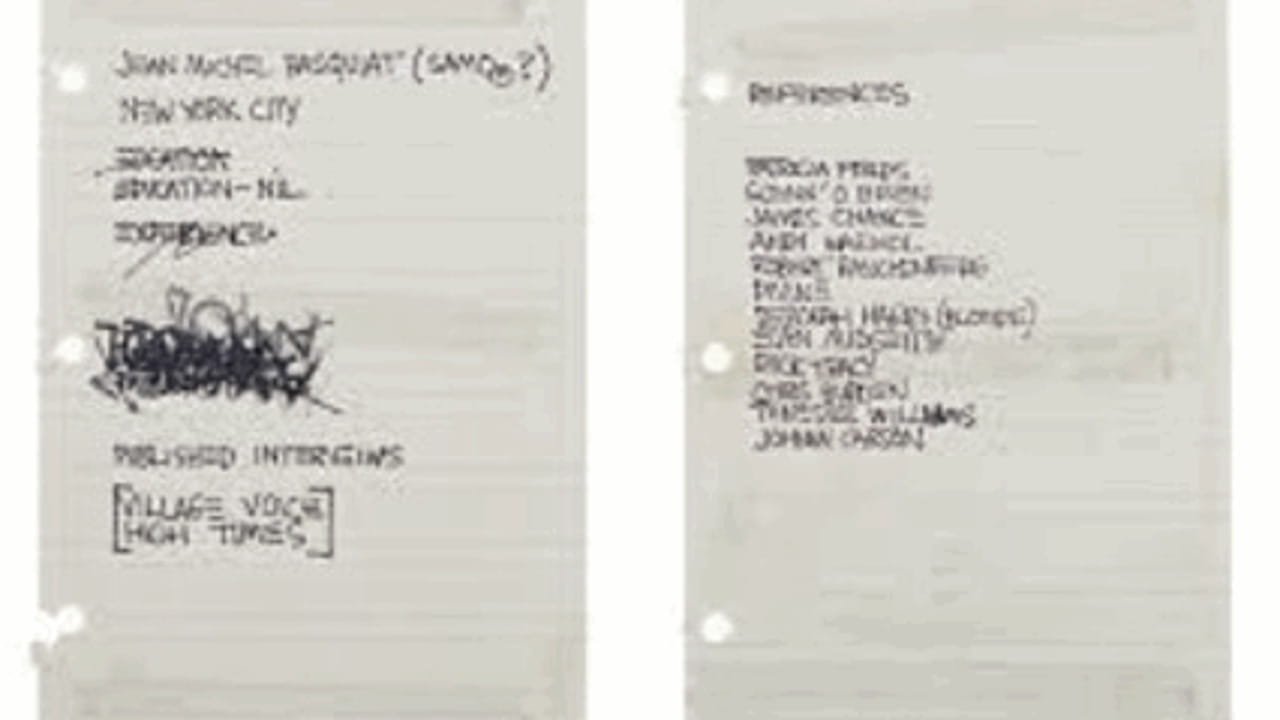 JEAN MICHEL BASQUIAT (SAMO©?)
NEW YORK CITY
EDUCATION
EDUCATION - NIL
EXPERIENCE
PUBLISHED INTERVIEWS
[VILLAGE VOICE
HIGH TIMES]
REFERENCES
PATRICIA FIELDS
GLENN O BRIEN
JAMES CHANCE
ANDY WARHOL
ROBERT RAUSCHENBERG
DEBORAH HARRY (BLONDIE)
CHRIS BURDEN
WILLIAMS
JOHNNY CARSON